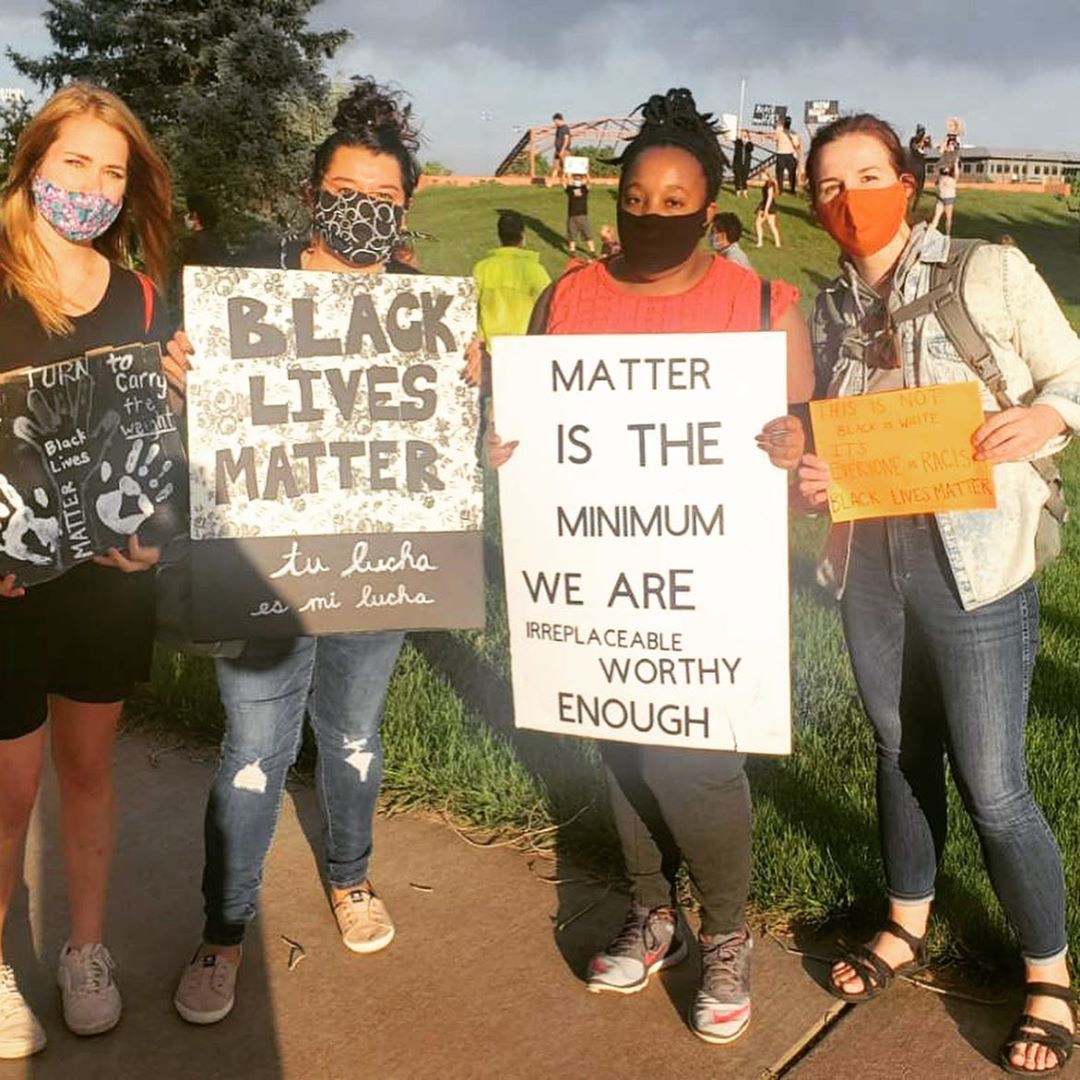 TURN
to
carry
the
weight
Black
Lives
MATTER
BLACK
LIVES
MATTER
tu lucha
es mi lucha
MATTER
IS THE
MINIMUM
WE ARE
IRREPLACEABLE
WORTHY
ENOUGH
THIS IS NOT
BLACK vs WHITE
IT'S
EVERYONE vs RACISM
BLACK LIVES MATTER